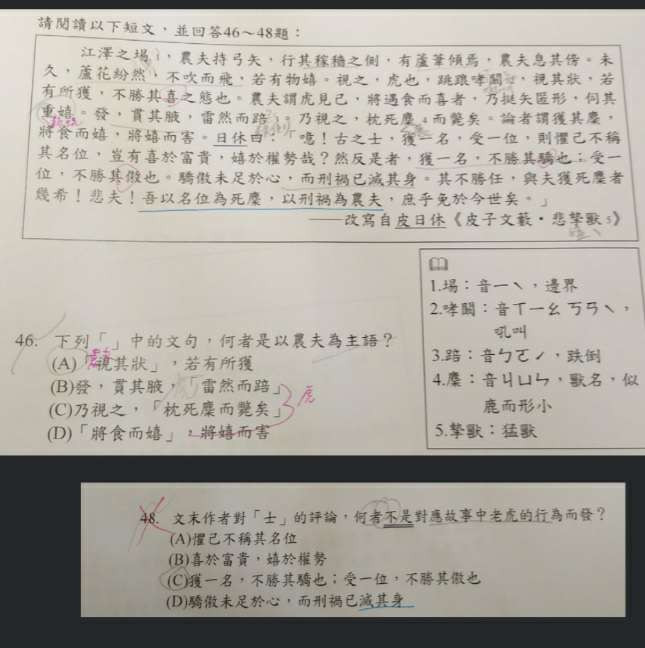 請閱讀以下短文，並回答46～48題：
江澤之場1，農夫持弓矢，行其稼穡之側，有蘆葦傾焉，農夫息其傍。未
久，蘆花紛然，不吹而飛，若有物嬉。視之，虎也，跳踉哮闞2，視其狀，若
有所獲，不勝其喜之態也。農夫謂虎見己，將遇食而喜者，乃挺矢匿形，伺其
重嬉。發，貫其腋，雷然而踣3。乃視之，枕死麇4而斃矣。論者謂獲其麇，
將食而嬉，將嬉而害。日休曰：「噫！古之士，獲一名，受一位，則懼己不稱
其名位，豈有喜於富貴，嬉於權勢哉？然反是者，獲一名，不勝其驕也；受一
位，不勝其傲也。驕傲未足於心，而刑禍已滅其身。其不勝任，與夫獲死麇者
幾希！悲夫！吾以名位為死麇，以刑禍為農夫，庶乎免於今世矣。」
——改寫自皮日休《皮子文藪‧悲摯獸5》
1.場：音ㄧˋ，邊界
2.哮闞：音ㄒㄧㄠ ㄎㄢˇ，
吼叫
3.踣：音ㄅㄛˊ，跌倒
4.麇：音ㄐㄩㄣ，獸名，似
鹿而形小
5.摯獸：猛獸
46. 下列「」中的文句，何者是以農夫為主語？
(A)「視其狀」，若有所獲
(B)發，貫其腋，「雷然而踣」
(C)乃視之，「枕死麇而斃矣」
(D)「將食而嬉」，將嬉而害
虎
48. 文末作者對「士」的評論，何者不是對應故事中老虎的行為而發？
(A)懼己不稱其名位
(B)喜於富貴，嬉於權勢
(C)獲一名，不勝其驕也；受一位，不勝其傲也
(D)驕傲未足於心，而刑禍已滅其身